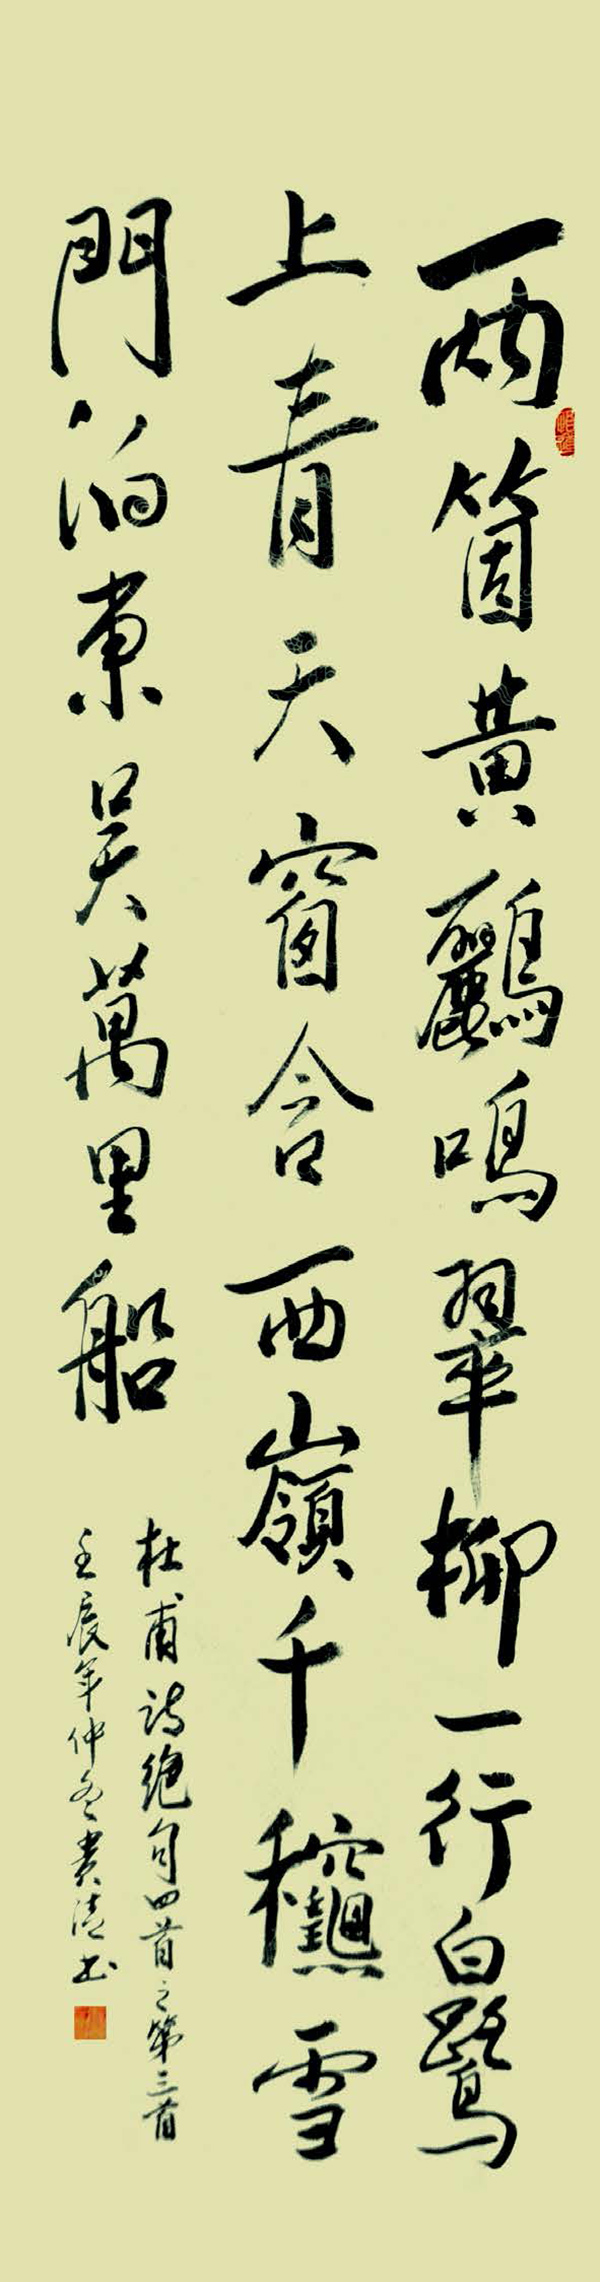 兩箇黃鸝鳴翠柳一行白鷺
上青天窗含西嶺千龝雪
門泊東吳萬里船
杜甫詩絶句四首之第三首
壬辰年仲冬貴清書